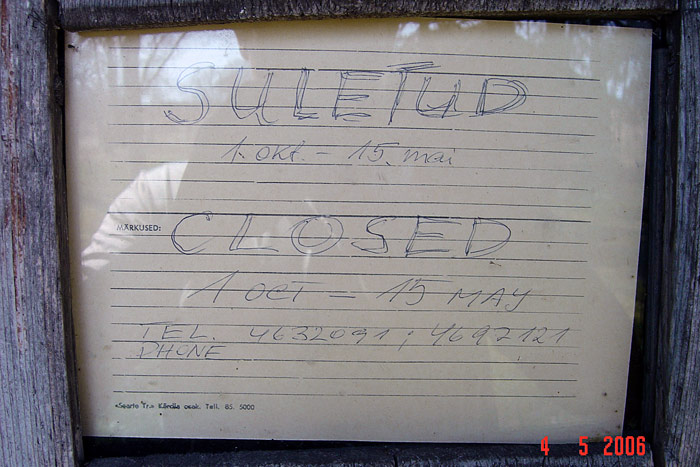 SULETUD
1. okt. – 15. mai
MÄRKUSED: CLOSED
1 OCT – 15 MAY
TEL. 4632091 ; 4697121
PHONE
«Saarte Tr.» Kärdla osak. Tell. 85. 5000
4 5 2006